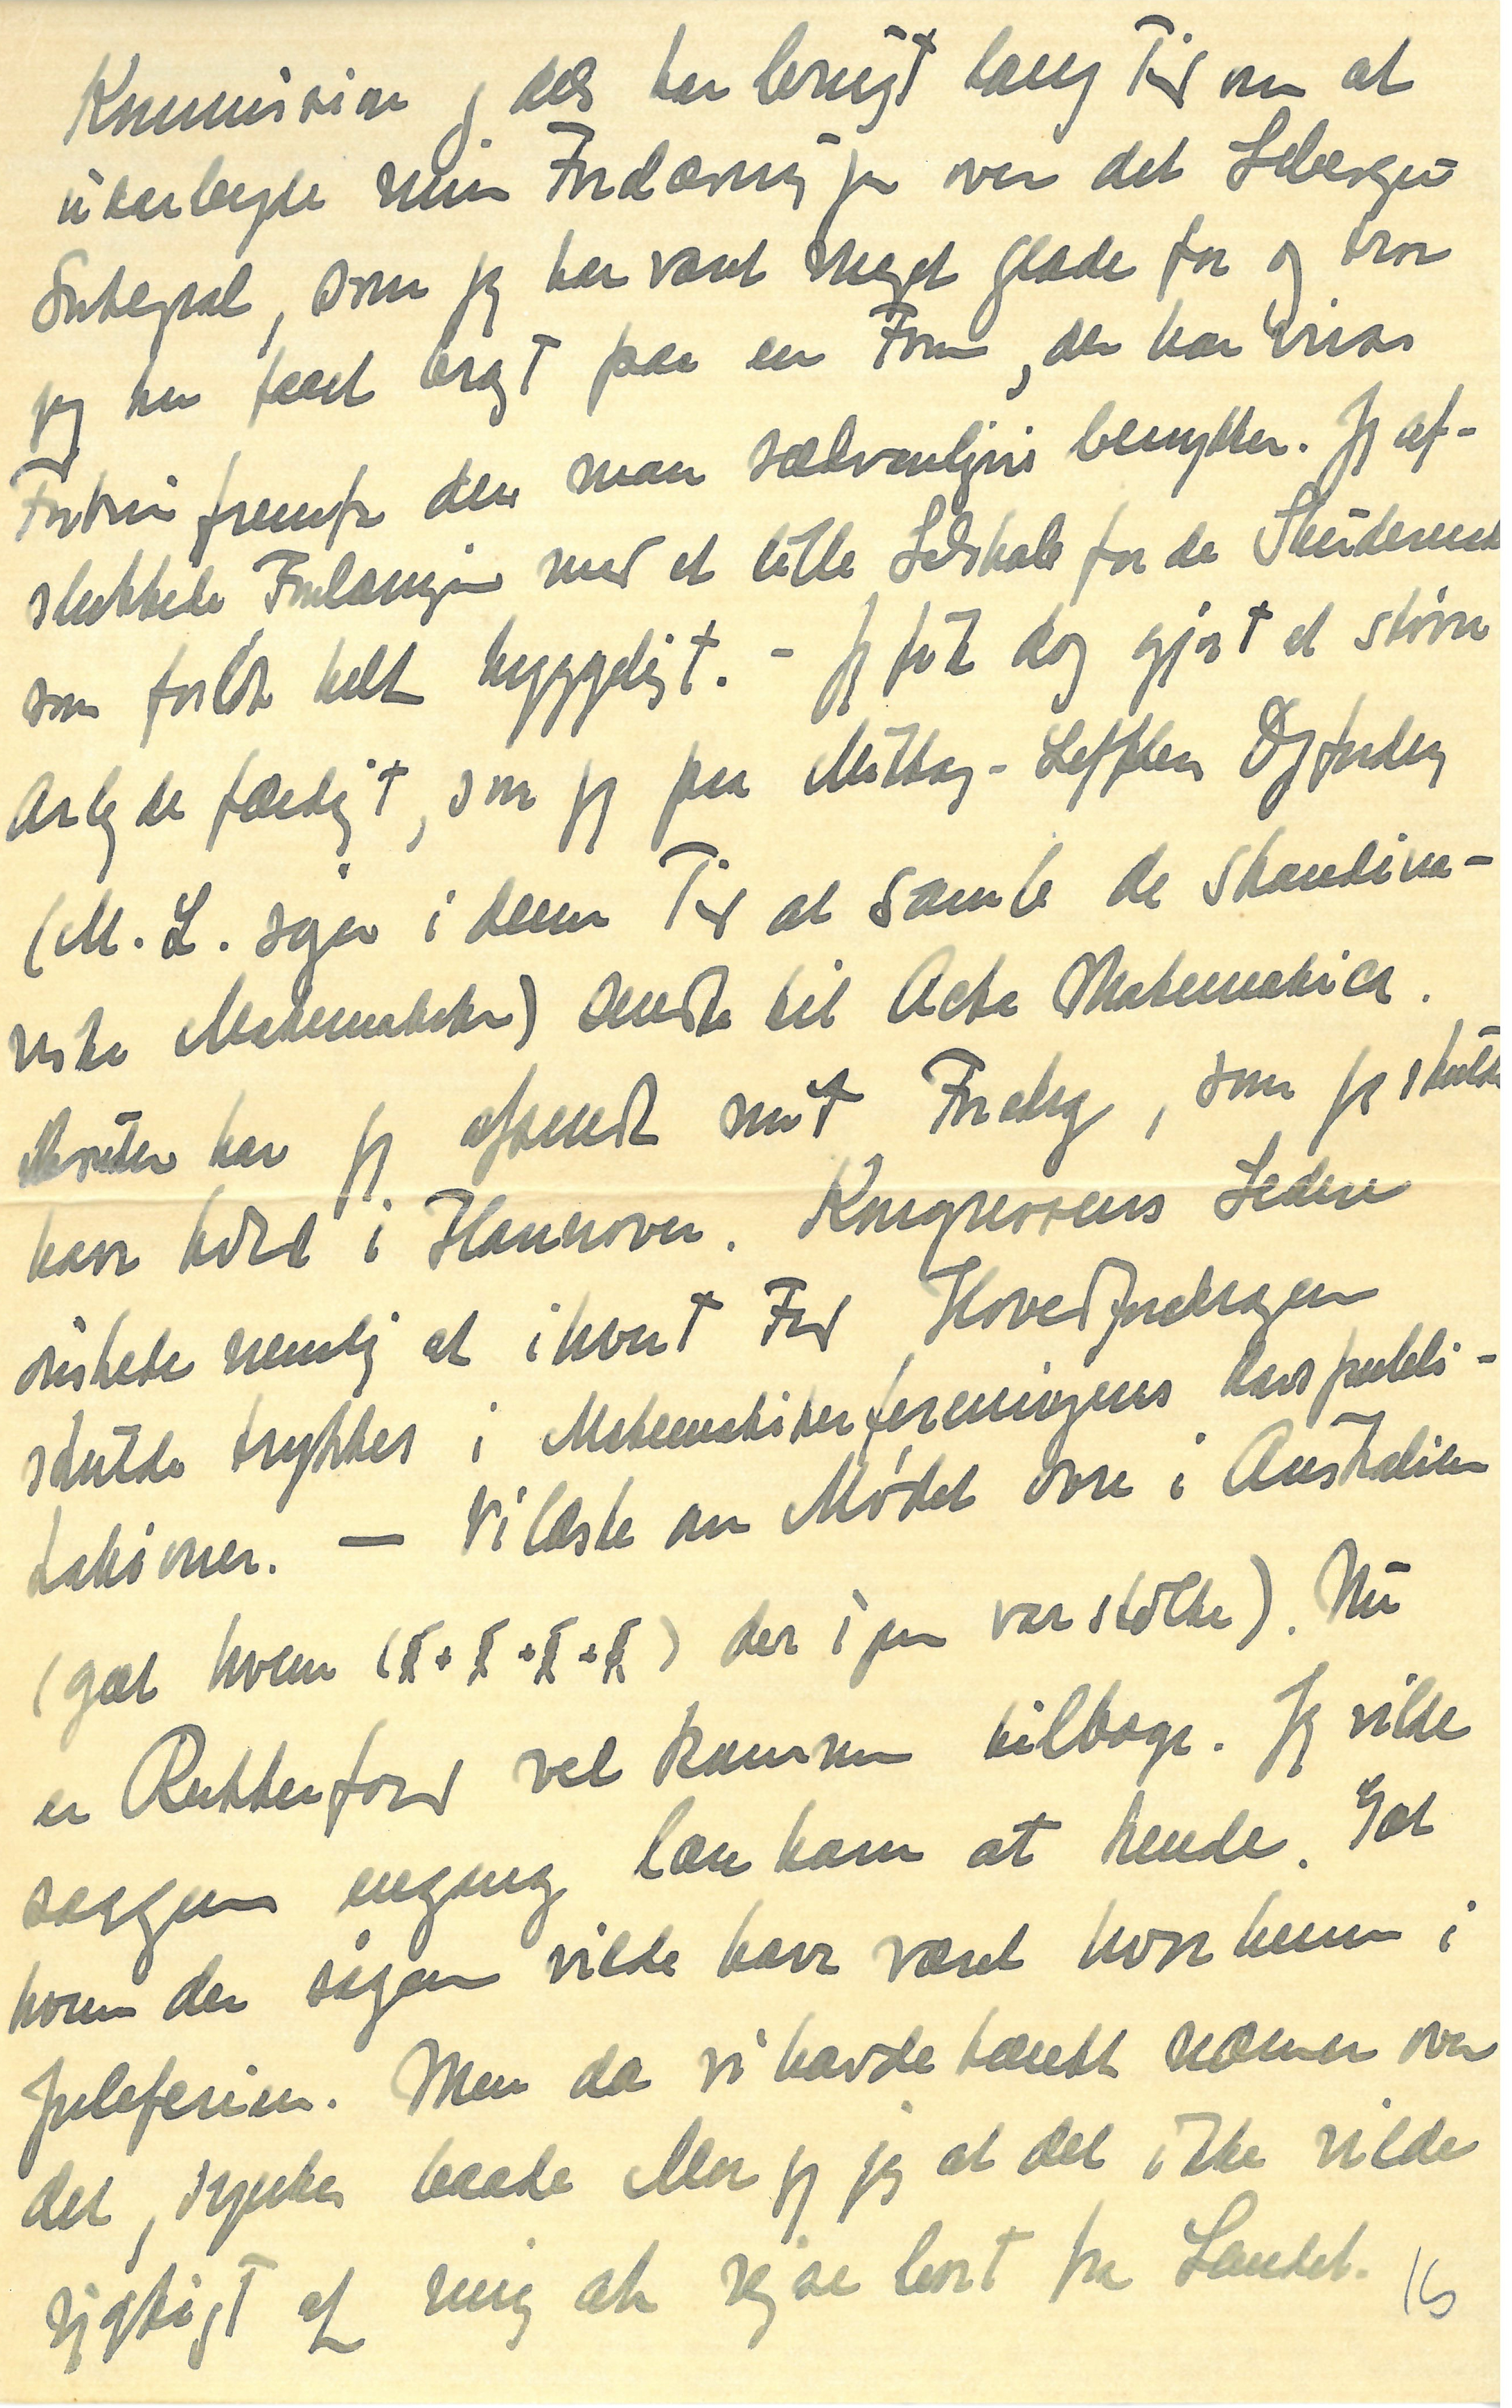 Kommission, dels har brugt lang Tid om at
udarbejde min Forelæsning over det Lebesgue
Integral, som jeg har været meget glade for og tror
jeg har faaet bragt paa en Form, der har visse
Fortrin fremfor den man sædvanligvis benytter. Jeg af-
sluttede Forelæsningen med et lille Selskab for de Studerende
som forløb helt hyggeligt. - Jeg fik dog gjort et større
Arbejde færdigt, som jeg paa Mittag-Lefflers Opfordring
(M. L. søger i denne Tid at samle de skandina-
viske Matematikere) sendte til Acta Mathematica.
har jeg afsendt mit Foredrag, som jeg skulde
have holdt i Hannover. Kongressens Ledere
ønskede nemlig at i hvert Fald Hovedforedragene
skulde trykkes i Matematikerforeningens publi-
kationer. — Vi læste om Mødet ovre i Australien
(gæt hvem ( + + + ) der igen var stolte). Nu
er Rutherford vel kommen tilbage. Jeg vilde
saagerne engang lære ham at kende. Gæt
hvem der saagerne vilde have været hos hende i
Juleferien. Men da vi havde tænkt nærmere over
det, syntes baade Mor og jeg at det ikke vilde
rigtigt af mig at rejse bort fra Landet.
16